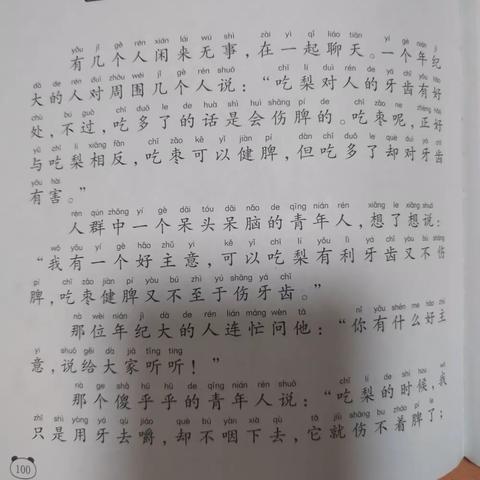 yǒu jǐ gè rén xián lái wú shì zài yì qǐ liáo tiān yí gè nián jì
有几个人闲来无事，在一起聊天。一个年纪
dà de rén duì zhōu wéi jǐ gè rén shuō chī lí duì rén de yá chǐ yǒu hǎo
大的人对周围几个人说：“吃梨对人的牙齿有好
chù bú guò chī duō le de huà shì huì shāng pí de chī zǎo ne zhèng hǎo
处，不过，吃多了的话是会伤脾的。吃枣呢，正好
yǔ chī lí xiāng fǎn chī zǎo kě yǐ jiàn pí dàn chī duō le què duì yá chǐ
与吃梨相反，吃枣可以健脾，但吃多了却对牙齿
yǒu hài
有害。”
rén qún zhōng yí gè dāi tóu dāi nǎo de qīng nián rén xiǎng le xiǎng shuō
人群中一个呆头呆脑的青年人，想了想说：
wǒ yǒu yí gè hǎo zhǔ yi kě yǐ chī lí yǒu lì yá chǐ yòu bù shāng
“我有一个好主意，可以吃梨有利牙齿又不伤
pí chī zǎo jiàn pí yòu bú zhì yú shāng yá chǐ
脾，吃枣健脾又不至于伤牙齿。”
nà wèi nián jì dà de rén lián máng wèn tā nǐ yǒu shén me hǎo zhǔ
那位年纪大的人连忙问他：“你有什么好主
yi shuō gěi dà jiā tīng ting
意，说给大家听听！”
nà ge shǎ hū hū de qīng nián rén shuō chī lí de shí hou wǒ
那个傻乎乎的青年人说：“吃梨的时候，我
zhǐ shì yòng yá qù jiáo què bú yàn xià qù tā jiù shāng bu zháo pí le
只是用牙去嚼，却不咽下去，它就伤不着脾了；
100